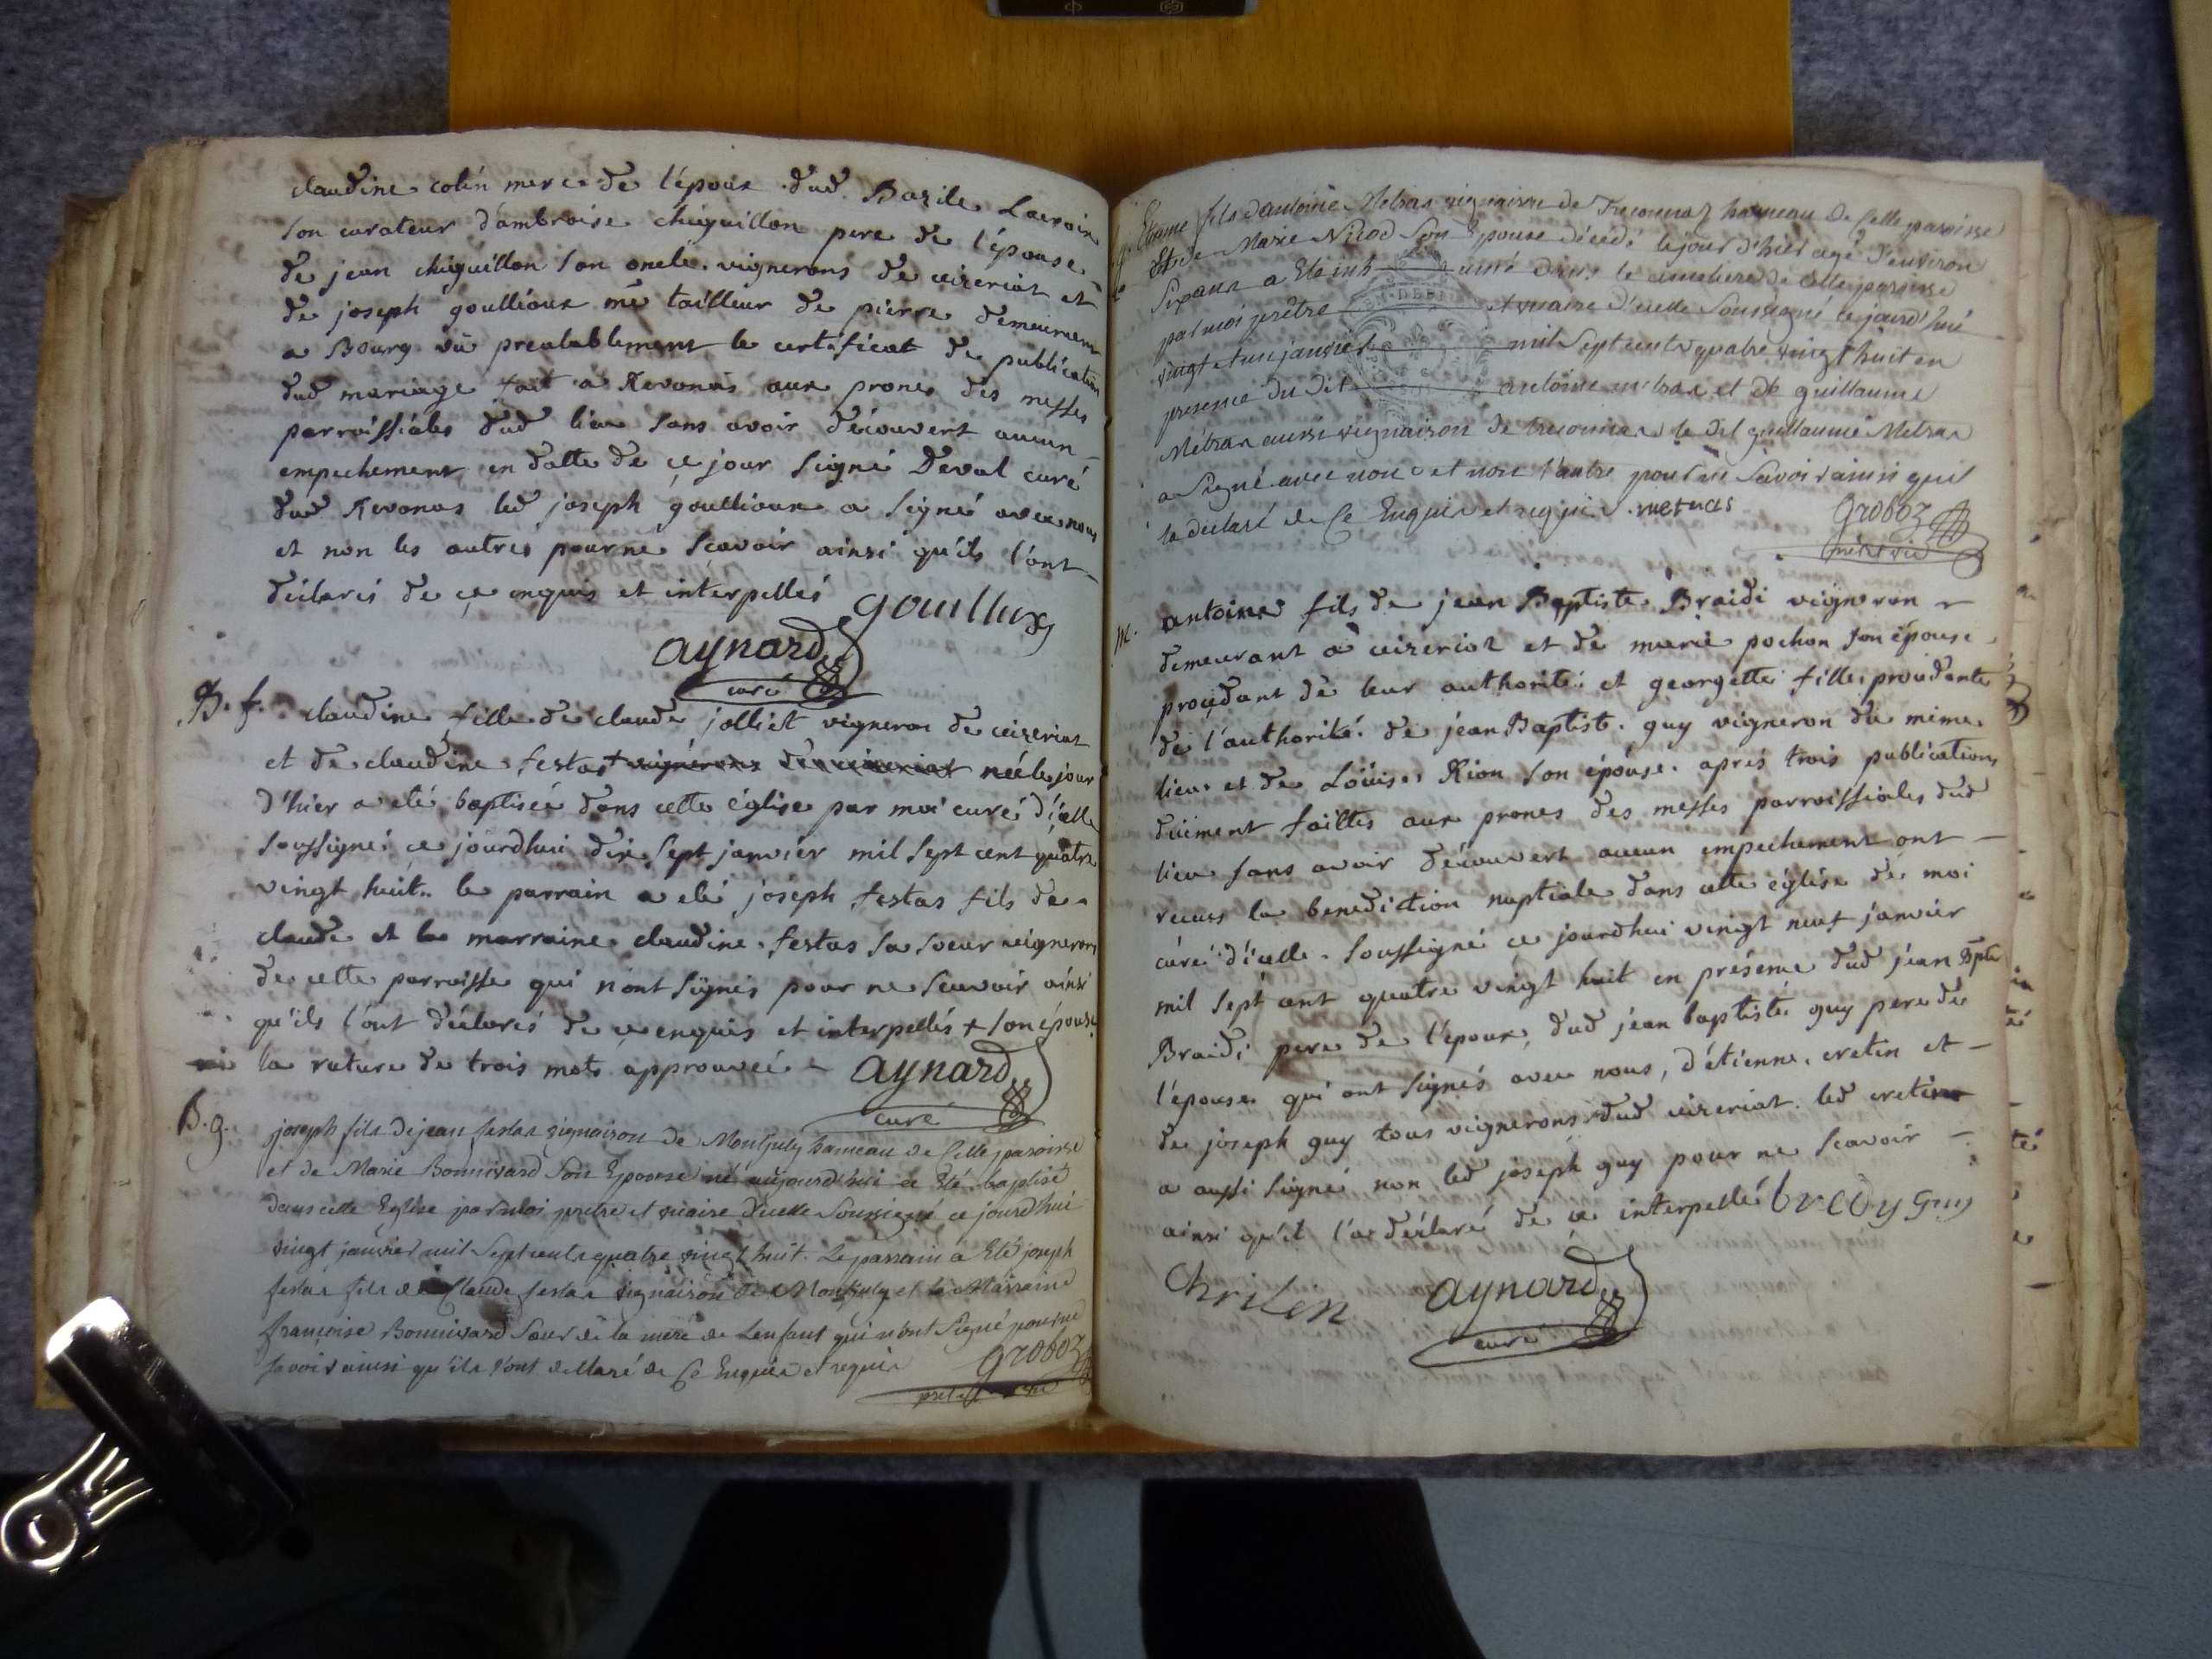 claudine colin mere de l'époux dud Bazile Lacroix
son curateur d'ambroise chiquillon pere de l'épouse
de jean chiquillon son oncle vignerons de ceizeriat et
de joseph goullioux me tailleur de pierre demeurent
a Bourg vû prealablement le certificat de publication
dud mariage fait a Revonas aux prones des messes
parroissiales dud lieu sans avoir découvert aucun
empechement en datte de ce jour signé Deval curé
dud Revonas led joseph goullioux a signé avec nous
et non les autres pour ne scavoir ainsi qu'ils l'ont
déclarés de ce enquis et interpellés
gouillux
aynard
curé
B. f. claudine fille de claude jolliet vigneron de ceizeriat
et de claudine festas + vignerons de ceizeriat née le jour
d'hier a eté baptisée dans cette église par moi curé d'icelle
soussigné ce jourdhui dix sept janvier mil sept cent quatre
vingt huit. le parrain a eté joseph festas fils de
claude et la marraine claudine festas sa soeur vignerons
de cette parroisse qui n'ont signés pour ne scavoir ainsi
qu'ils l'ont déclarés de ce enquis et interpellés + son épouse
la rature de trois mots approuvée
aynard
curé
B. g. joseph fils de jean festas vigneron de Montjuly hameau de Cette paroisse
et de Marie Bonnivard Son Epouse né aujourd'hui a Eté baptisé
dans cette Eglise par moi pretre et vicaire d'icelle Soussigné ce jourdhui
vingt janvier mil Sept cents quatre vingt huit. Le parrain a Eté joseph
festas fils de Claude festas vigneron de Montjuly et la Marraine
françoise Bonnivard Sœur de la mere de Lenfant qui n'ont Signé pour ne
Savoir ainsi qu'ils l'ont déclaré de Ce Enquis et requis
Groboz
Etienne fils d'antoine Metras vigneron de Treconnaz hameau de Cette paroisse
Et de Marie Nicod Son Epouse décédé le jour d'hier agé d'environ
Six ans a Eté inhumé dans le cimetiere de Cette paroisse
par moi prêtre et vicaire d'icelle Soussigné ce jourd'hui
vingt et un janvier mil Sept cents quatre vingt huit en
presence du dit antoine metras et de guillaume
Metras aussi vigneron de treconnas le dit guillaume Metras
a Signé avec nous et non l'autre pour ne Savoir ainsi quil
la declaré de Ce Enquis et requis. metras
Groboz
M. antoine fils de jean Baptiste Braidi vigneron
demeurant à ceizeriat et de marie pochon son épouse
procédant de leur authorité et georgette fille procédante
de l'authorité de jean Baptiste guy vigneron du même
lieu et de Loüise Rion son épouse. aprés trois publications
düement faittes aux prones des messes parroissiales dud
lieu sans avoir découvert aucun empechement ont
recus la benediction nuptiale dans cette église de moi
curé d'icelle soussigné ce jourdhui vingt neuf janvier
mil sept cent quatre vingt huit en présence dud jean Bpte
Braidi pere de l'époux, dud jean baptiste guy pere de
l'épouse qui ont signés avec nous, d'étienne cretin et
de joseph guy tous vignerons dud ceizeriat. led cretin
a aussi signé non led joseph guy pour ne scavoir
ainsi qu'il l'a déclaré de ce interpellé
guy
aynard
curé